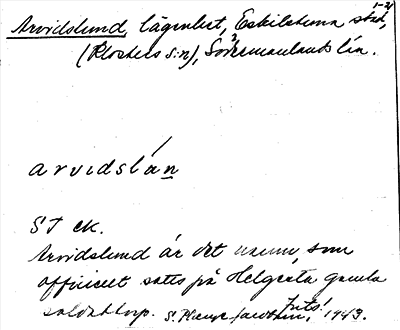 Arvidslund, lägenhet, Eskilstuna stad,
(Klosters s:n), Södermanlands län.
arvidslán
ST ek.
Arvidslund är det namn, som
officiellt satts på Helgesta gamla
soldattorp. S. 1943.